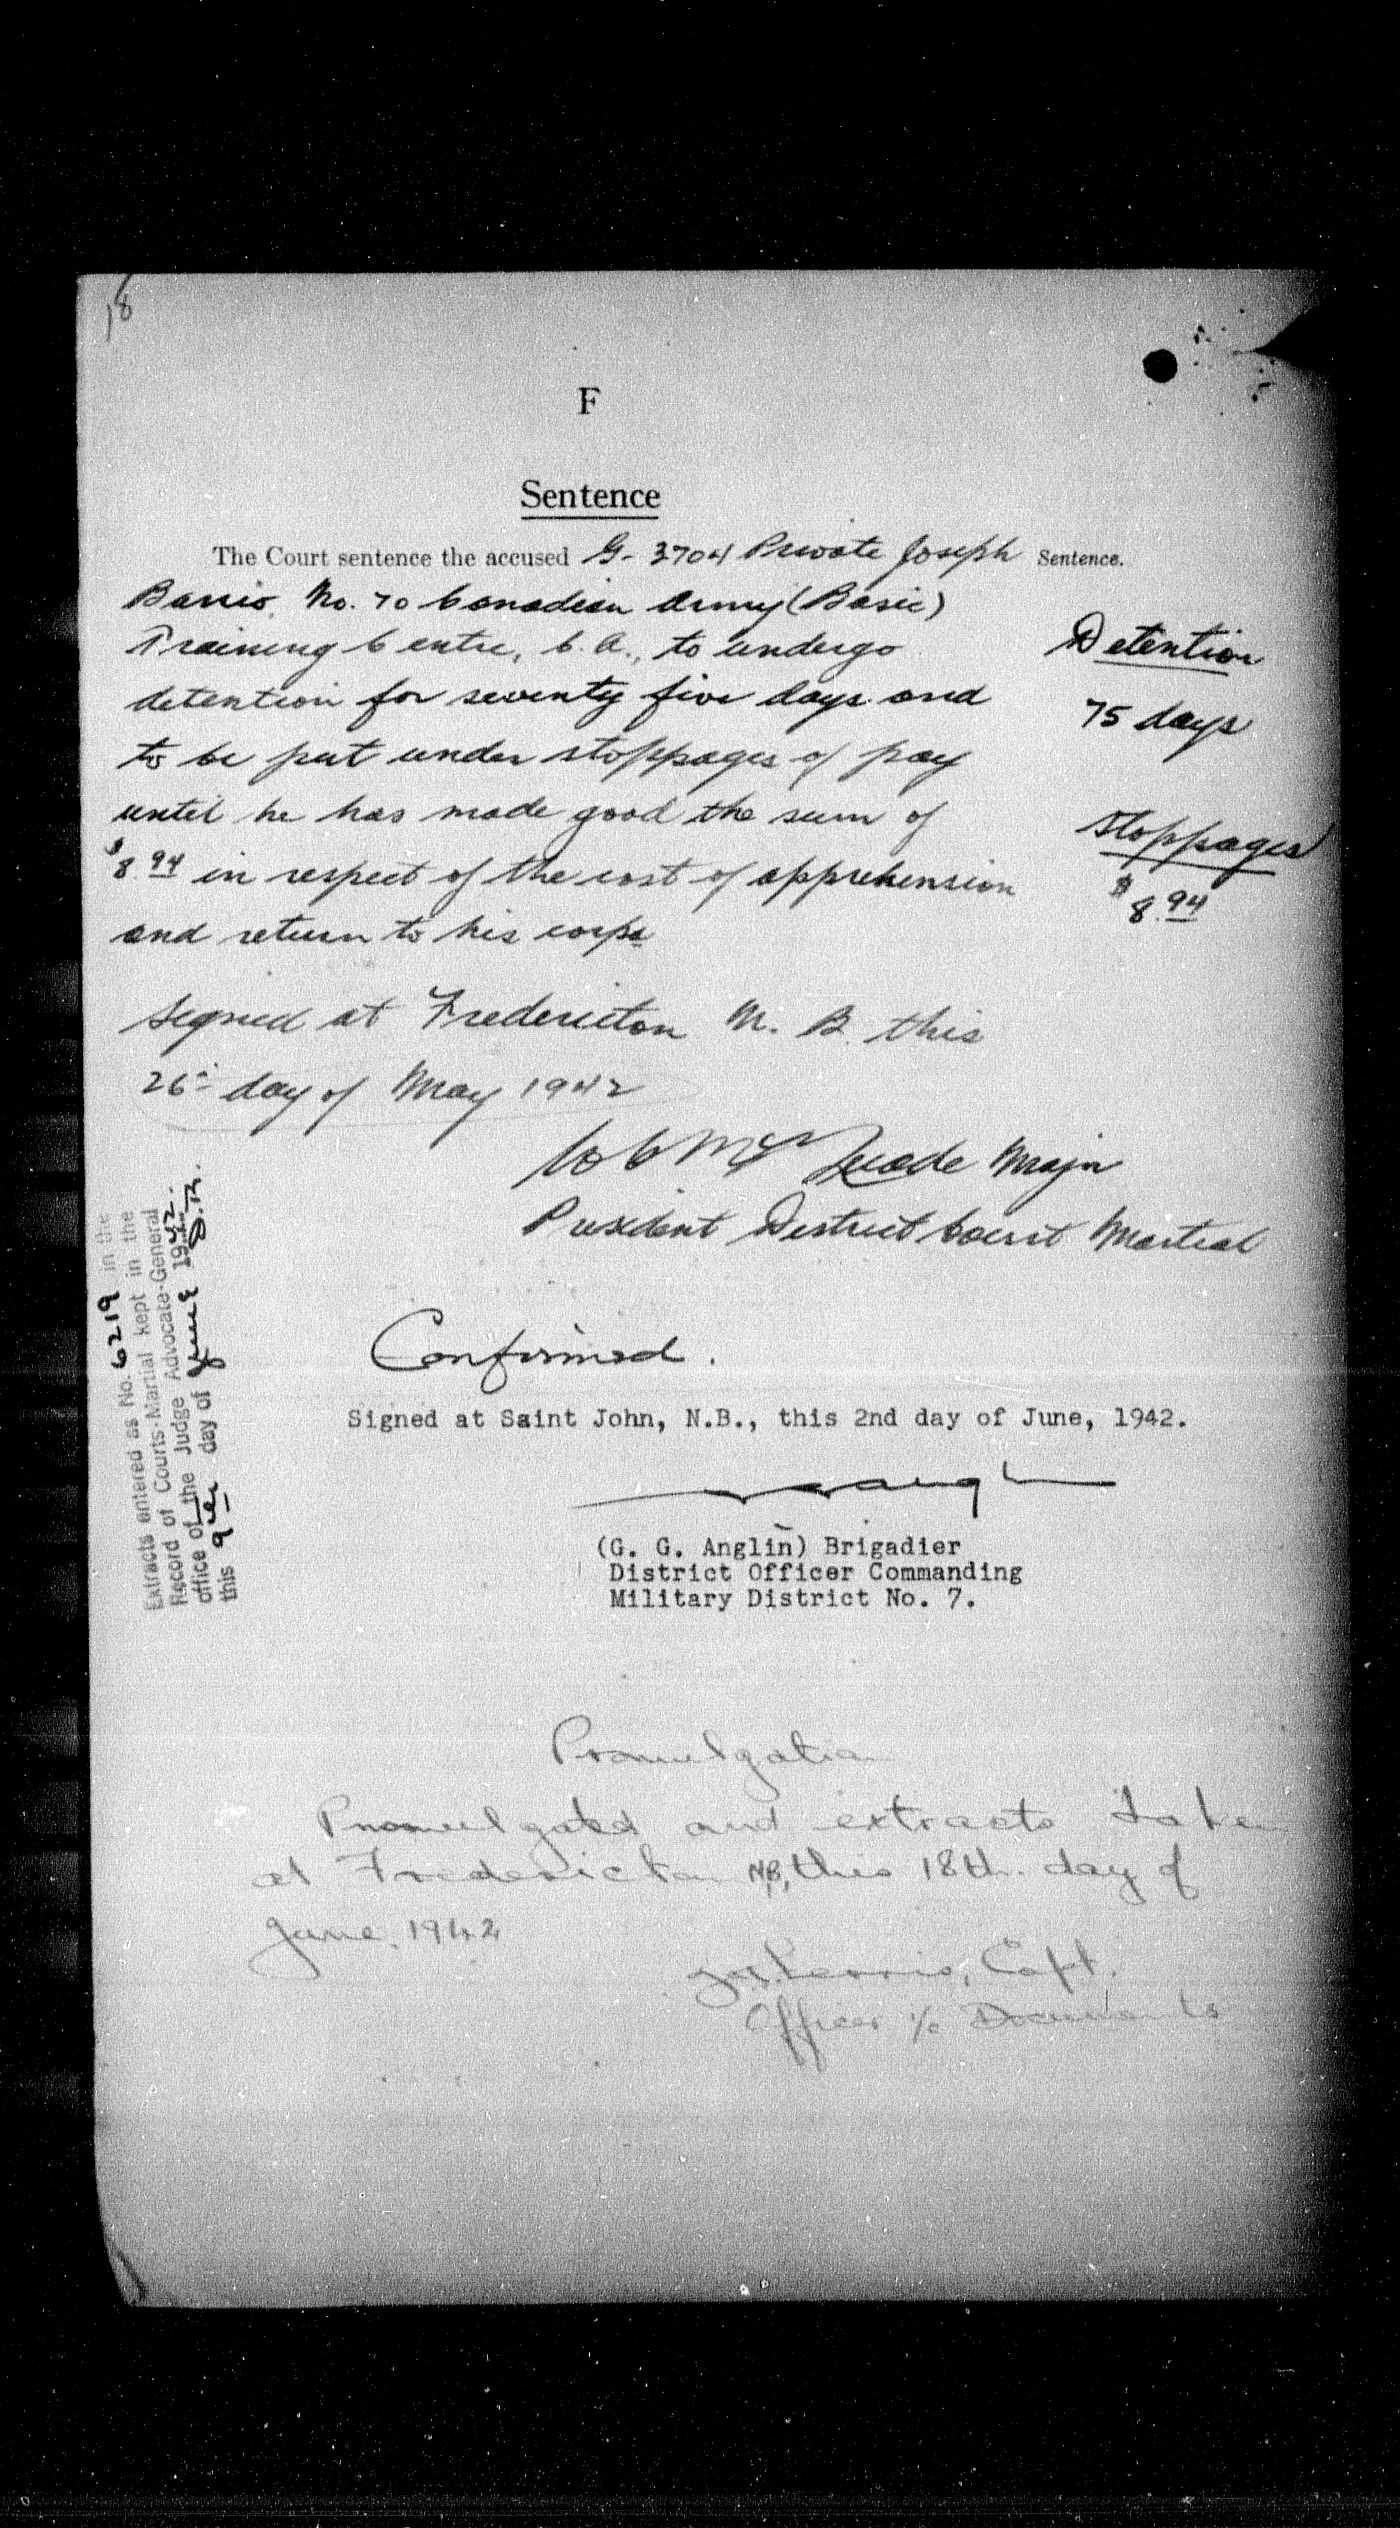 18
F
Sentence
The Court sentence the accused G-3704 Private Joseph Sentence.
Barrio, No. 70 Canadian Army (Basic)
Training Centre, C.A., to undergo
Detention
detention for seventy five days and
75 days
to be put under stoppages of pay
until he has made good the sum of
Stoppages
$8.94 in respect of the cost of apprehension
$8.94
and return to his corps
Signed at Fredericton N. B. this
26th day of May 1942
Major
President District Court Martial
Extracts entered as No. 6219 in the
Record of Courts-Martial kept in the
office of the Judge Advocate-General
this 9th day of June 1942.
Confirmed.
Signed at Saint John, N.B., this 2nd day of June, 1942.
(G. G. Anglin) Brigadier
District Officer Commanding
Military District No. 7.
Promulgation
Promulgated and extracts taken
at Fredericton N.B, this 18th. day of
June, 1942
Capt.
Officer i/c Documents